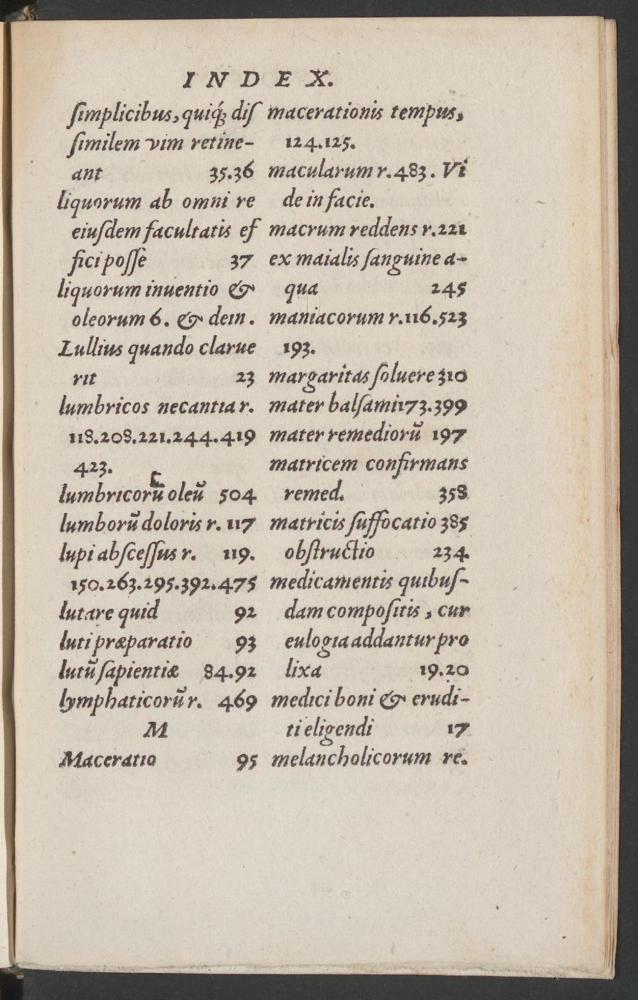 INDEX.
ſimplicibus, quiq́ꝫ diſ
ſimilem vim retine-
ant 35.36
liquorum ab omni re
eiuſdem facultatis ef
fici poſſe 37
liquorum inuentio &
oleorum 6. & dein.
Lullius quando clarue
rit 23
lumbricos necantia r.
118.208.221.244.419
423.
lumbricorū oleū 504
lumborū doloris r. 117
lupi abſceſſus r. 119.
150.263.295.392.475
lutare quid 92
luti præparatio 93
lutū ſapientiæ 84.92
lymphaticorū r. 469
M
Maceratio 95
macerationis tempus,
124.125.
macularum r. 483. Vi
de in facie.
macrum reddens r. 221
ex maialis ſanguine a-
qua 245
maniacorum r. 116.523
193.
margaritas ſoluere 310
mater balſami 173.399
mater remediorū 197
matricem confirmans
remed. 358
matricis ſuffocatio 385
obſtructio 234
medicamentis quibuſ-
dam compoſitis, cur
eulogia addantur pro
lixa 19.20
medici boni & erudi-
ti eligendi 17
melancholicorum re.